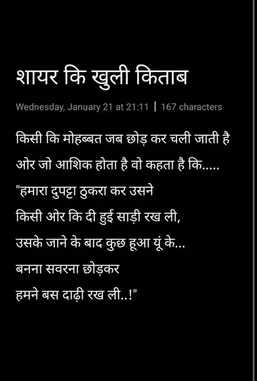 शायर कि खुली किताब
Wednesday, January 21 at 21:11 | 167 characters
किसी कि मोहब्बत जब छोड़ कर चली जाती है
ओर जो आशिक होता है वो कहता है कि.....
"हमारा दुपट्टा ठुकरा कर उसने
किसी ओर कि दी हुई साड़ी रख ली,
उसके जाने के बाद कुछ हूआ यूं के...
बनना सवरना छोड़कर
हमने बस दाढ़ी रख ली..!"